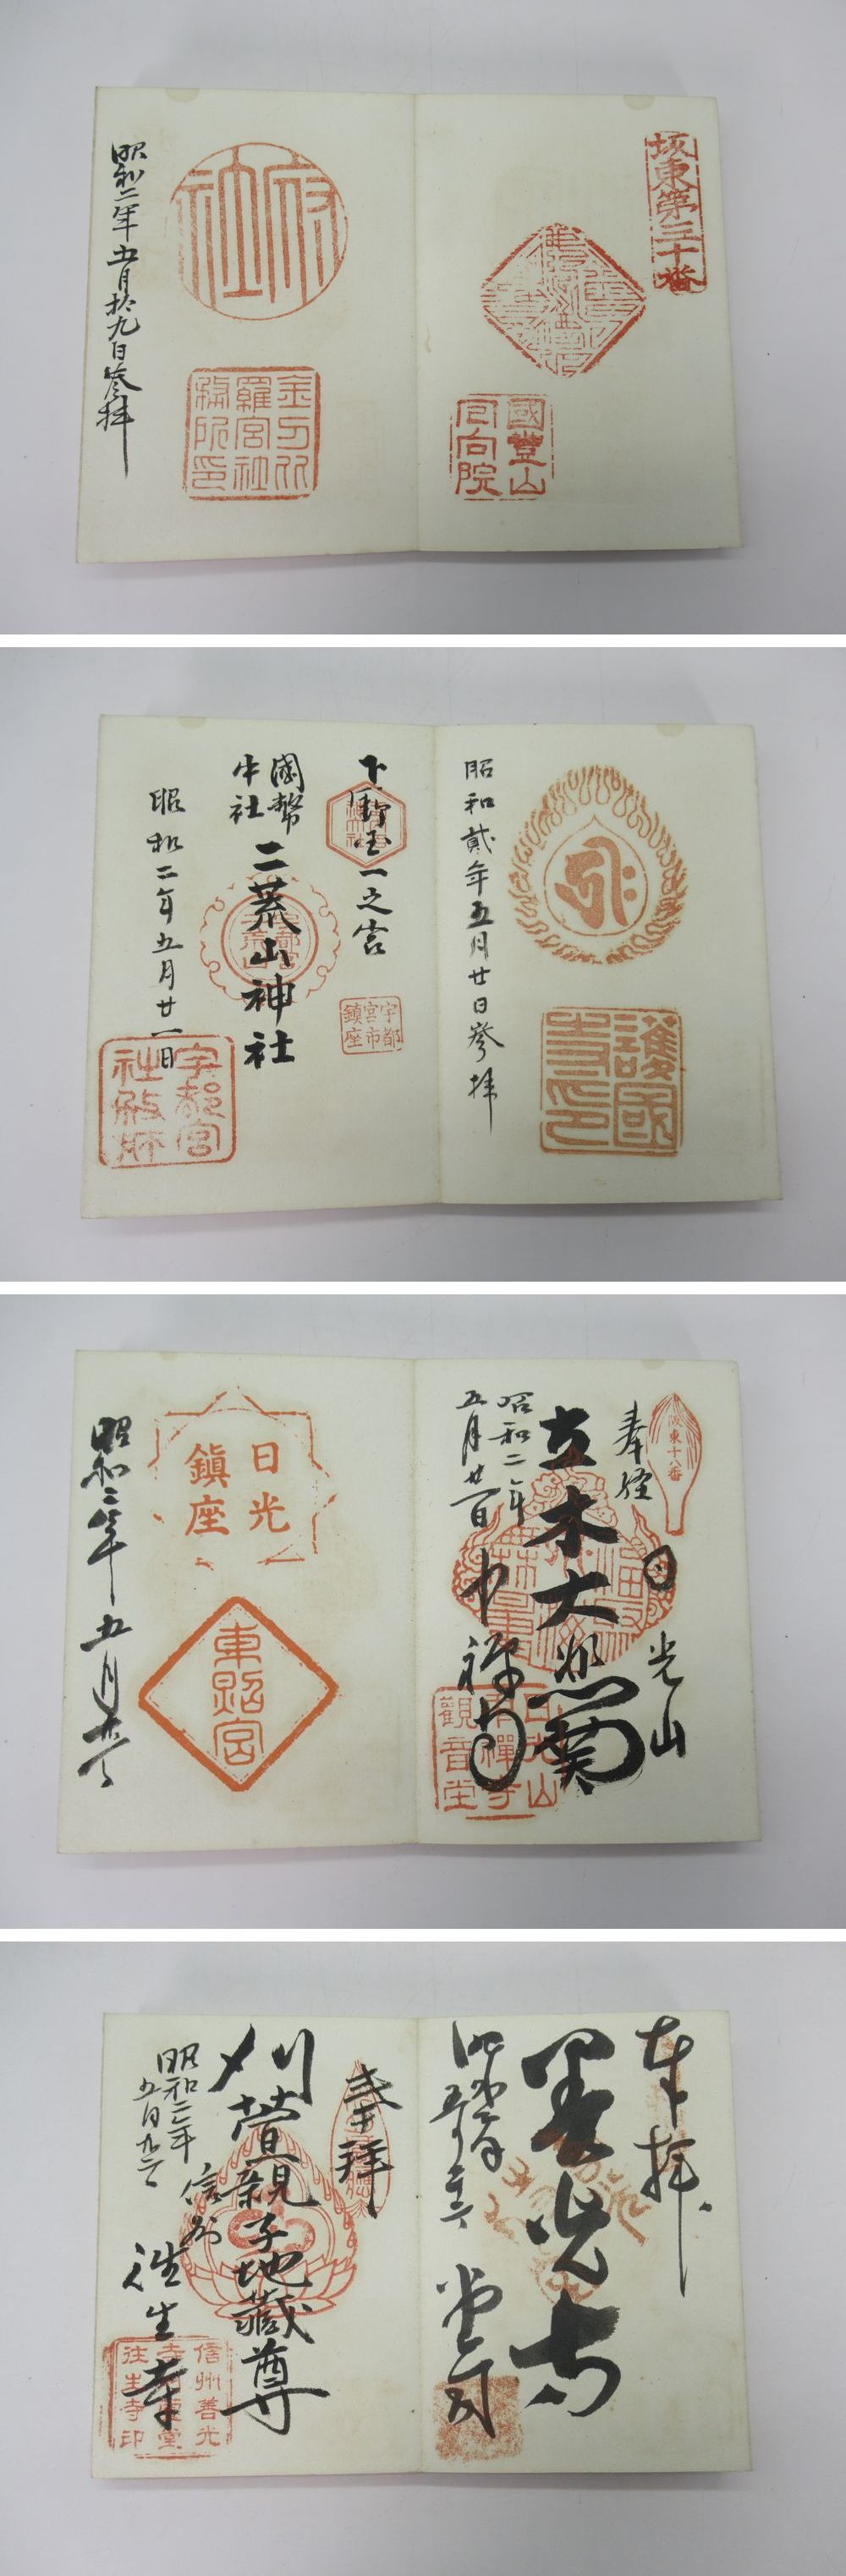 坂東第三十番
國豊山
回向院
府社
金刀比
羅宮社
務所印
昭和二年五月拾九日参拝
護國
寺印
昭和貳年五月廿日参拝
下野国一之宮
宇都
宮市
鎮座
國幣
中社
二荒山神社
昭和二年五月廿一日
宇都宮
坂東十八番
奉経
日光山
立木大悲閣
昭和二年
五月廿一日
中禅寺
日光山
中禅寺
観音堂
日光
鎮座
東照宮
昭和二年五月
奉拝
善光寺
堂司
奉拝
刈萱親子地蔵尊
昭和二年
信州
往生寺
信州善光
往生寺印